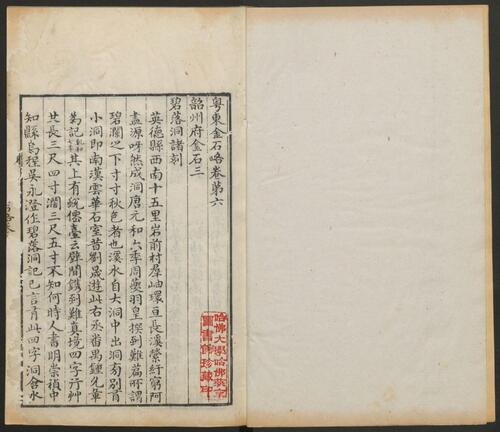 粵東金石略卷第六
韶州府金石三
碧落洞諸刻
英德縣西南十五里岩前村羣岫環亘長溪縈紆窮阿
盡源呀然成洞唐元和六年周夔羽皇撰到難篇所謂
碧瀾之下寸寸秋色者也溪水自大洞中出洞旁別有
小洞即南漢雲華石室昔劉晟遊此右丞番禺鍾允章
為記其上有綂儒臺云壁間鐫到難真境四字行艸
長三尺四寸濶三尺五寸不知何時人書明崇禎中
知縣烏程吳永澄作碧落洞記已言有此四字洞舍水
哈佛大學哈佛燕京
圖書館珍藏印